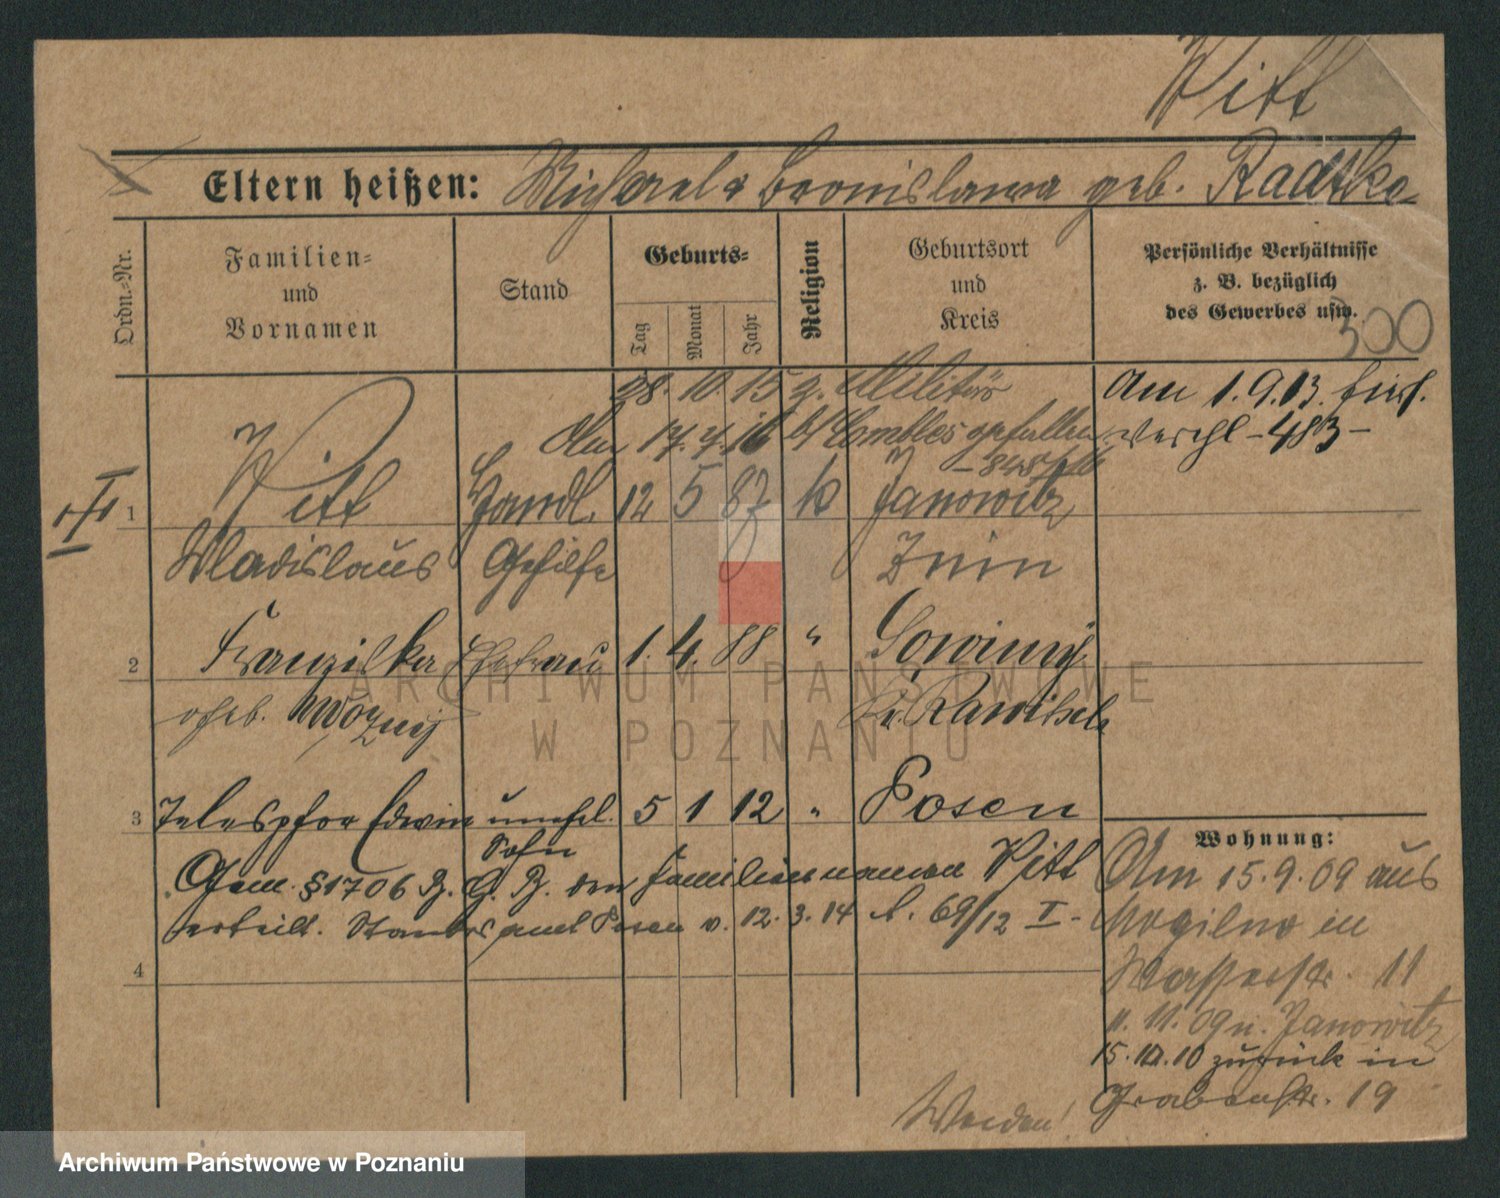 Witt
Eltern heißen: Michael & Bronislawa geb. Radtke
Ordn.-Nr.
Familien-
und
Vornamen
Stand
Geburts-
Tag
Monat
Jahr
Religion
Geburtsort
und
Kreis
Persönliche Verhältnisse
z. B. bezüglich
des Gewerbes usw.
300
28. 10. 15 z. Militär
Am 17.7.16 b/ Combles gefallen
Am 1.9.13.
-483-
1 Witt Handl. 12 5 87 k Janowitz
Wladislaus Gehilfe Znin
2 Franziska Ehefrau 1. 4. 88 " 
geb. Woznij Kr. Rawitsch
3 Telesphor Edwin unehel. 5 1 12 " Posen
Sohn
Gem. § 1706 B. G. B. den Familiennamen Witt
erteilt. Standesamt Posen v. 12. 3. 14 A. 69/12 I-
4
Wohnung:
Am 15.9.09 aus
Mogilno in
Wasserstr. 11
11. 09 n. Janowitz
15.10.10 zurück in
Grabenstr. 19
Wenden!
ARCHIWUM PAŃSTWOWE
W POZNANIU
Archiwum Państwowe w Poznaniu